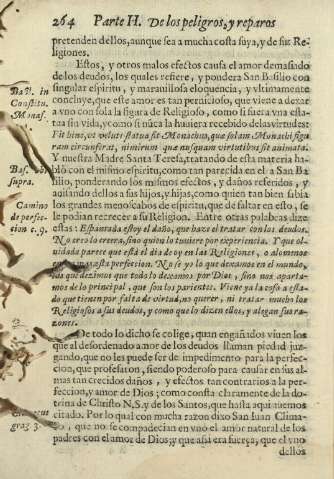 264 Parte II. De los peligros, y reparos
pretenden dellos, aunque sea a mucha costa suya, y de sus Re-
ligiones.
Estos, y otros malos efectos causa el amor demasiado
de los deudos, los quales refiere, y pondera San Basilio con
singular espiritu, y marauillosa eloquencia, y vltimamente
concluye, que este amor es tan pernicioso, que viene a dexar
a vno con sola la figura de Religioso, como si fuera vna esta-
tua sin vida, y como si nũca la huuiera recebido de las virtudes:
Fit hinc, vt veluti statua fit Monachus, quæ solam Monachi figu
ram circunferat, nimirum quæ nusquam virtutibus sit animata.
Y nuestra Madre Santa Teresa, tratando de esta materia ha-
bló con el mismo espiritu, como tan parecida en el a San Ba
silio, ponderando los mismos efectos, y daños referidos, y
auisando dellos a sus hijos, y hijas, como quien tan bien sabia
los grandes menoscabos de espiritu, que de faltar en esto, se
le podian recrecer a su Religion. Entre otras palabras dize
estas: Espantada estoy el daño, que haze el tratar con los deudos.
No creo lo creera, sino quien lo tuuiere por experiencia. Y que ol-
uidada parece que està el dia de oy en las Religiones, o alomenos
esta perfeccion. No se yo lo que dexamos en el mundo,
las que dezimos que todo lo dexamos por Dios, sino nos aparta-
mos de lo principal, que son los parientes. Viene ya la cosa a esta-
do que tienen por falta de virtud, no querer, ni tratar mucho los
Religiosos a sus deudos, y como que lo dizen ellos, y alegan sus ra-
zones.
De todo lo dicho se colige, quan engañados viuen los
que al desordenado amor de los deudos llaman piedad, juz-
gando, que no les puede ser de impedimento para la perfec-
cion, que professaron, siendo poderoso para causar en sus al-
mas tan crecidos daños, y efectos tan contrarios a la per-
feccion, y amor de Dios; como consta claramente de la do-
trina de Christo N.S. y de los Santos, que hasta aqui auemos
citado. Por lo qual con mucha razon dixo San Iuan Clima-
co, que no se compadecian en vno el amor natural de los
padres con el amor de Dios; y que assi era fuerça, que el vno
dellos
Basil. in
Constitu.
Monas.
Bas. vbi
supra.
Camino
de perfec-
cion c.9.
grad. 3.